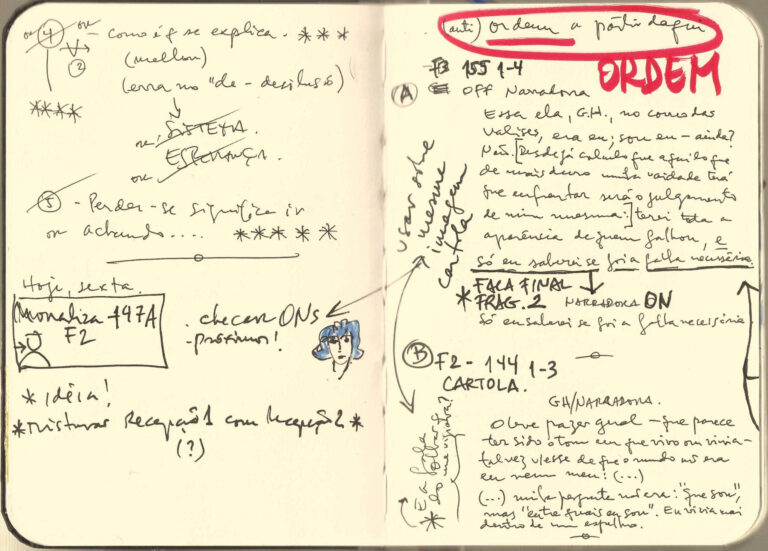 ou 4 ou - Como é q se explica - ***
2
(melhor)
(erra no "de-desilusão)
****
ou: SISTEMA.
ou ESPERANÇA.
5 - Perder-se significa ir
ou achando.... *****
Hoje, sexta.
Monaliza 497A
F2
. checar ONs
- próximos!
* Idéia!
* Misturar Recepção 1 com Recepção 2 *
(?)
(anti) ordem a partir daqui
ORDEM
F3 155 1-4
A OFF Narradora
Essa ela, G.H., no couro das
valises, era eu; sou eu - ainda?
Não. [Desde já calculo que aquilo que
de mais duro minha vaidade terá
que enfrentar será o julgamento
de mim mesma:] terei toda a
aparência de quem falhou, e
só eu saberei se foi a falha necessária.
usar sobre
mesma
imagem
cartola
FALA FINAL
* FRAG. 2 NARRADORA ON
Só eu saberei se foi a falha necessária
B F2 - 144 1-3
CARTOLA.
GH/NARRADORA.
O leve prazer geral - que parece
ter sido o tom em que vivo ou vivia -
talvez viesse de que o mundo não era
eu nem meu: (...)
(...) minha pergunta não era: "que sou",
mas "entre quais eu sou". Eu vivia mais
dentro de um espelho.
E a fala
*